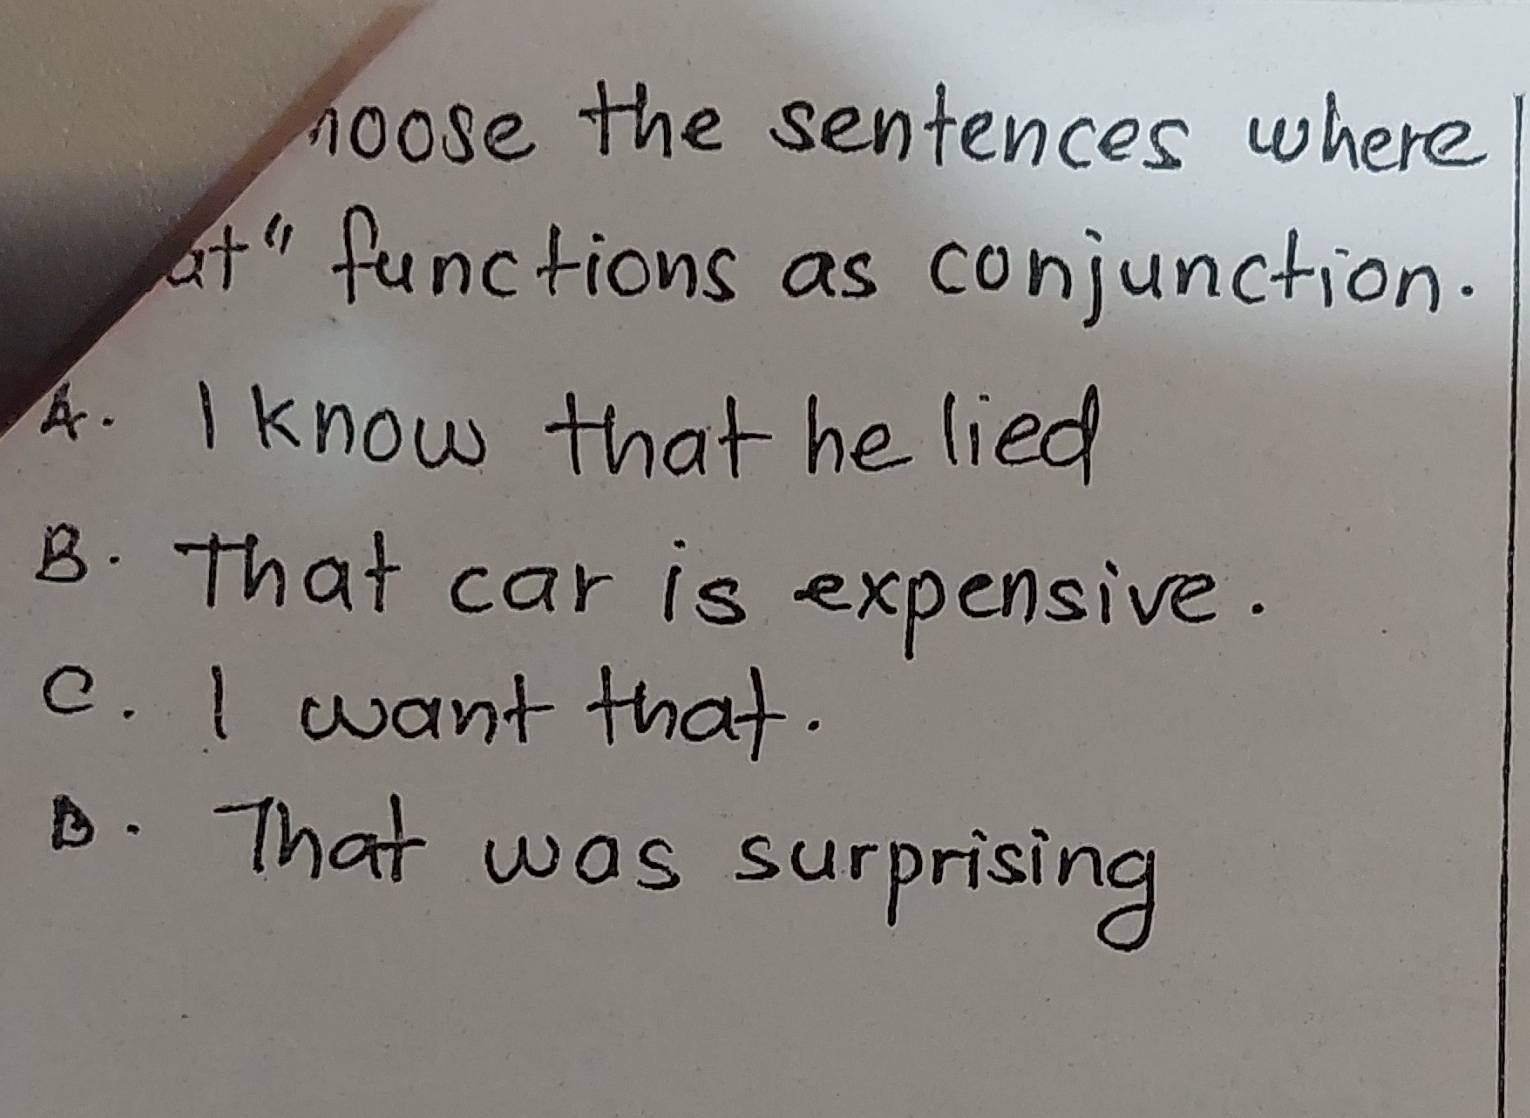 the sentences where
functions as conjunction.
A. I know that he lied
B. That car is expensive.
C. I want that.
D. That was surprising